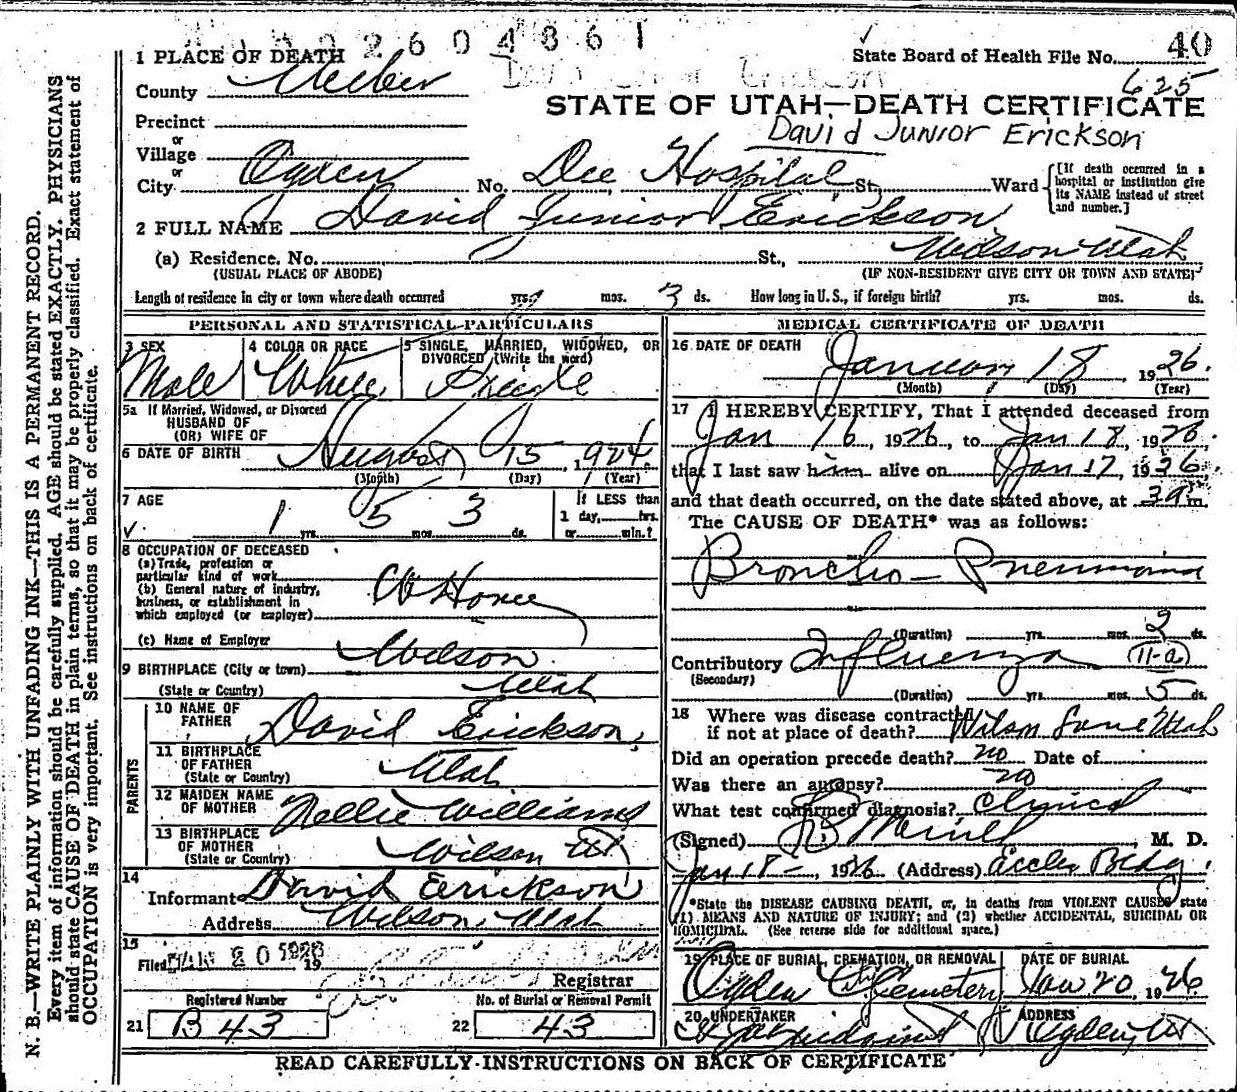 2604861
1 PLACE OF DEATH
State Board of Health File No. 40
County Weber
625
STATE OF UTAH—DEATH CERTIFICATE
Precinct
David Junior Erickson
or
Village
or
City Ogden No. Dee Hospital St. Ward
[If death occurred in a
hospital or institution give
its NAME instead of street
and number.]
2 FULL NAME David Junior Erickson
(a) Residence. No. St., Wilson Utah
(USUAL PLACE OF ABODE) (IF NON-RESIDENT GIVE CITY OR TOWN AND STATE)
Length of residence in city or town where death occurred yrs. mos. 3 ds. How long in U.S., if foreign birth? yrs. mos. ds.
PERSONAL AND STATISTICAL PARTICULARS
3 SEX
Male
4 COLOR OR RACE
White
5 SINGLE, MARRIED, WIDOWED, OR
DIVORCED (Write the word)
Single
5a If Married, Widowed, or Divorced
HUSBAND OF
(OR) WIFE OF
6 DATE OF BIRTH August 15, 1924
(Month) (Day) (Year)
7 AGE
1 yrs. 5 mos. 3 ds.
If LESS than
1 day, hrs.
or min.?
8 OCCUPATION OF DECEASED
(a) Trade, profession or
particular kind of work
(b) General nature of industry,
business, or establishment in
which employed (or employer)
At Home
(c) Name of Employer
9 BIRTHPLACE (City or town) Wilson
(State or Country) Utah
PARENTS
10 NAME OF
FATHER David Erickson
11 BIRTHPLACE
OF FATHER
(State or Country) Utah
12 MAIDEN NAME
OF MOTHER Nellie Williams
13 BIRTHPLACE
OF MOTHER
(State or Country) Wilson Ut
14
Informant David Erickson
Address Wilson, Utah
15
Filed JAN 20 1926 19
Registrar
Registered Number
21 B 43
No. of Burial or Removal Permit
22 43
MEDICAL CERTIFICATE OF DEATH
16 DATE OF DEATH
January 18, 1926.
(Month) (Day) (Year)
17 I HEREBY CERTIFY, That I attended deceased from
Jan 16, 1926, to Jan 18, 1926.
that I last saw him alive on Jan 17, 1926.
and that death occurred, on the date stated above, at 3 a m.
The CAUSE OF DEATH* was as follows:
Broncho-Pneumonia
(Duration) yrs. mos. 2 ds.
Contributory Influenza 11-a
(Secondary)
(Duration) yrs. mos. 5 ds.
18 Where was disease contracted
if not at place of death? Wilson Lane Utah
Did an operation precede death? no Date of
Was there an autopsy? no
What test confirmed diagnosis? Clinical
(Signed) M. D.
Jan 18, 1926 (Address) Eccles Bldg.
*State the DISEASE CAUSING DEATH, or, in deaths from VIOLENT CAUSES state
(1) MEANS AND NATURE OF INJURY; and (2) whether ACCIDENTAL, SUICIDAL OR
HOMICIDAL. (See reverse side for additional space.)
19 PLACE OF BURIAL, CREMATION, OR REMOVAL
Ogden City Cemetery
DATE OF BURIAL
Jan 20, 1926
20 UNDERTAKER
ADDRESS
Ogden, Ut
READ CAREFULLY-INSTRUCTIONS ON BACK OF CERTIFICATE
N. B.—WRITE PLAINLY WITH UNFADING INK—THIS IS A PERMANENT RECORD.
Every item of information should be carefully supplied. AGE should be stated EXACTLY. PHYSICIANS
should state CAUSE OF DEATH in plain terms, so that it may be properly classified. Exact statement of
OCCUPATION is very important. See instructions on back of certificate.